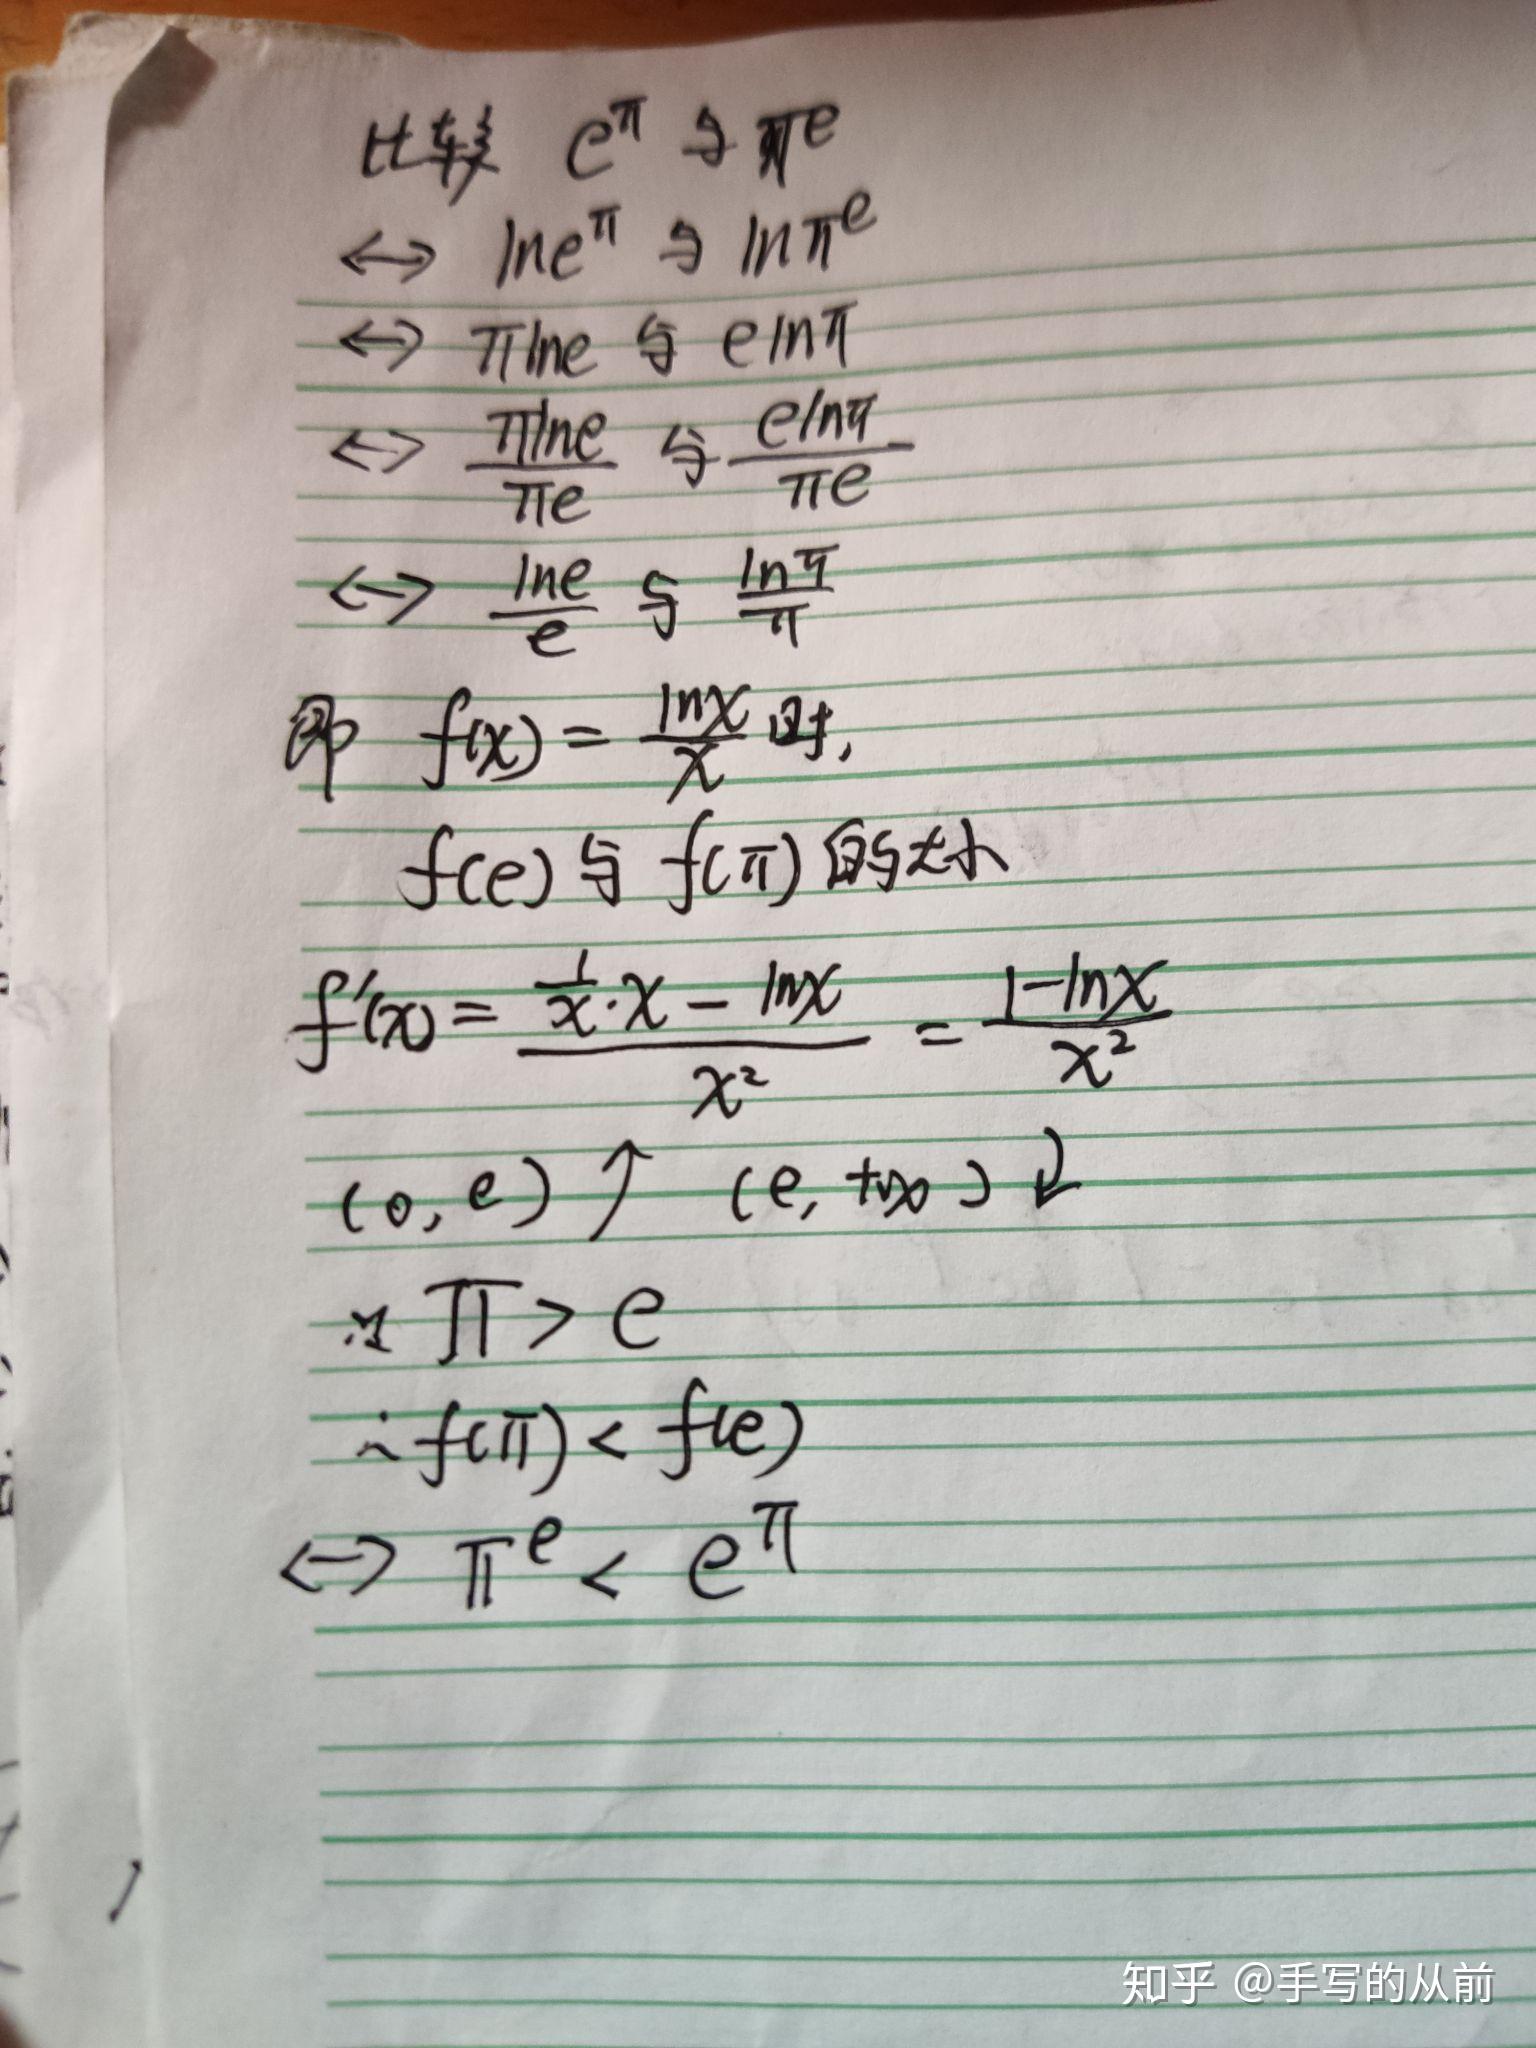 比较 e^π 与 π^e
↔ lne^π 与 lnπ^e
↔ πlne 与 elnπ
↔ πlne/πe 与 elnπ/πe
↔ lne/e 与 lnπ/π
即 f(x) = lnx/x 时,
f(e) 与 f(π) 的大小
f'(x) = (1/x·x - lnx)/x² = (1-lnx)/x²
(0, e) ↑ (e, +∞) ↓
∵ π > e
∴ f(π) < f(e)
↔ π^e < e^π
知乎 @手写的从前